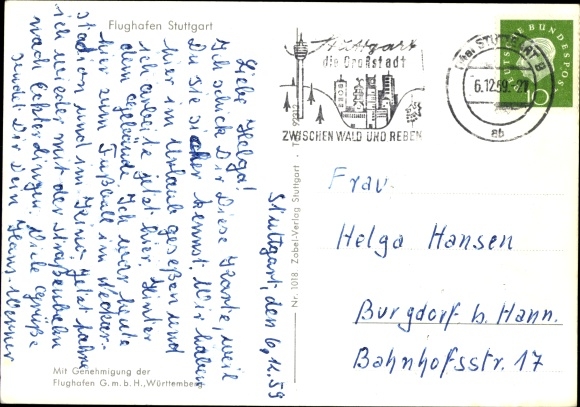 Flughafen Stuttgart
Stuttgart, den 6.12.59
Liebe Helga!
Ich schick Dir diese Karte, weil
Du sie sicher kennst. Wir haben
hier im Urlaub gesessen und
ich arbeite jetzt hier hinter
dem Gebäude. Ich war heute
hier zum Fußball im Neckar-
stadion und im Kino. Jetzt fahre
ich wieder mit der Straßenbahn
nach Echterdingen. Viele Grüße
sendet Dir Dein Hans-Werner
Mit Genehmigung der
Flughafen G.m.b.H., Württemberg
Nr. 1018 Zobel-Verlag Stuttgart
Stuttgart
die Großstadt
ZWISCHEN WALD UND REBEN
STUTTGART 9
6.12.59.-21
ab
DEUTSCHE BUNDESPOST
10
Frau
Helga Hansen
Burgdorf b. Hann.
Bahnhofsstr. 17